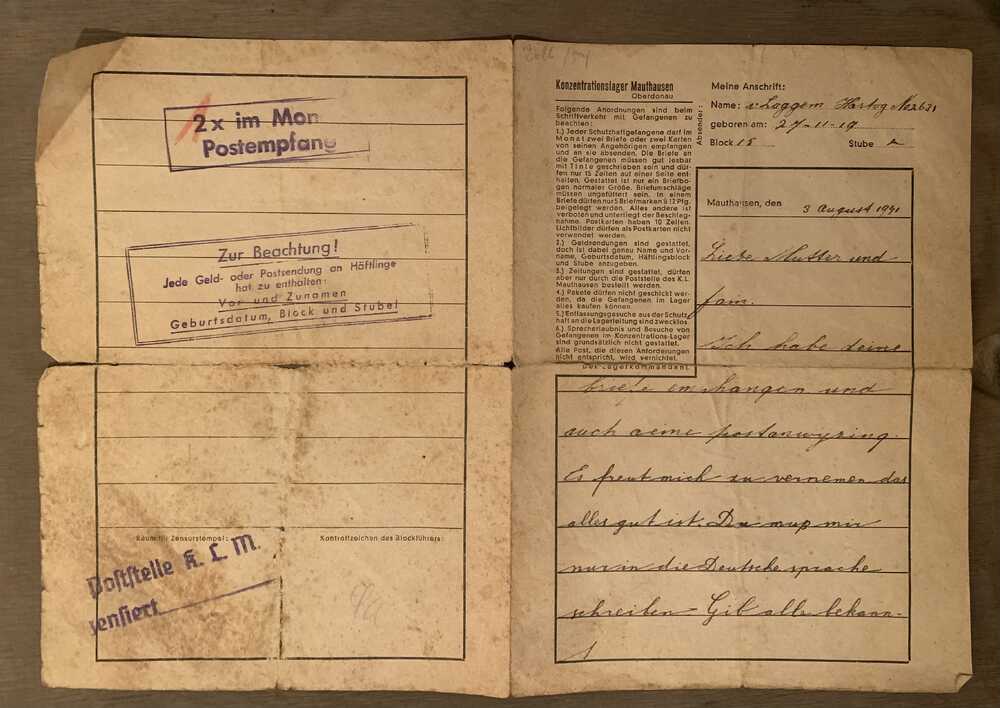 2x im Mon
Postempfang
Zur Beachtung!
Jede Geld- oder Postsendung an Häftlinge
hat zu enthalten:
Vor- und Zunamen
Geburtsdatum, Block und Stube!
Raum für Zensurstempel:
Kontrollzeichen des Blockführers:
Poststelle K. L. M.
zensiert
Konzentrationslager Mauthausen
Oberdonau
Folgende Anordnungen sind beim
Schriftverkehr mit Gefangenen zu
beachten:
1.) Jeder Schutzhaftgefangene darf im
Monat zwei Briefe oder zwei Karten
von seinen Angehörigen empfangen
und an sie absenden. Die Briefe an
die Gefangenen müssen gut lesbar
mit Tinte geschrieben sein und dür-
fen nur 15 Zeilen auf einer Seite ent-
halten. Gestattet ist nur ein Briefbo-
gen normaler Größe. Briefumschläge
müssen ungefüttert sein. In einem
Briefe dürfen nur 5 Briefmarken à 12 Pfg.
beigelegt werden. Alles andere ist
verboten und unterliegt der Beschlag-
nahme. Postkarten haben 10 Zeilen.
Lichtbilder dürfen als Postkarten nicht
verwendet werden.
2.) Geldsendungen sind gestattet,
doch ist dabei genau Name und Vor-
name, Geburtsdatum, Häftlingsblock
und Stube anzugeben.
3.) Zeitungen sind gestattet, dürfen
aber nur durch die Poststelle des K. L.
Mauthausen bestellt werden.
4.) Pakete dürfen nicht geschickt wer-
den, da die Gefangenen im Lager
alles kaufen können.
5.) Entlassungsgesuche aus der Schutz-
haft an die Lagerleitung sind zwecklos.
6.) Sprecherlaubnis und Besuche von
Gefangenen im Konzentrations-Lager
sind grundsätzlich nicht gestattet.
Alle Post, die diesen Anforderungen
nicht entspricht, wird vernichtet.
Der Lagerkommandant.
Absender:
Meine Anschrift:
Name: v Laggem Hartog No
geboren am: 27-11-19
Block 15 Stube A
Mauthausen, den 3 August 1941
Liebe Mutter und
fam.
Ich habe deine
briefe emfhangen und
auch deine postanwyzing.
Es freut mich zu vernemen das
alles gut ist. Du musz mir
nur in die Deutsche sprache
schreiben Gib alle bekann-